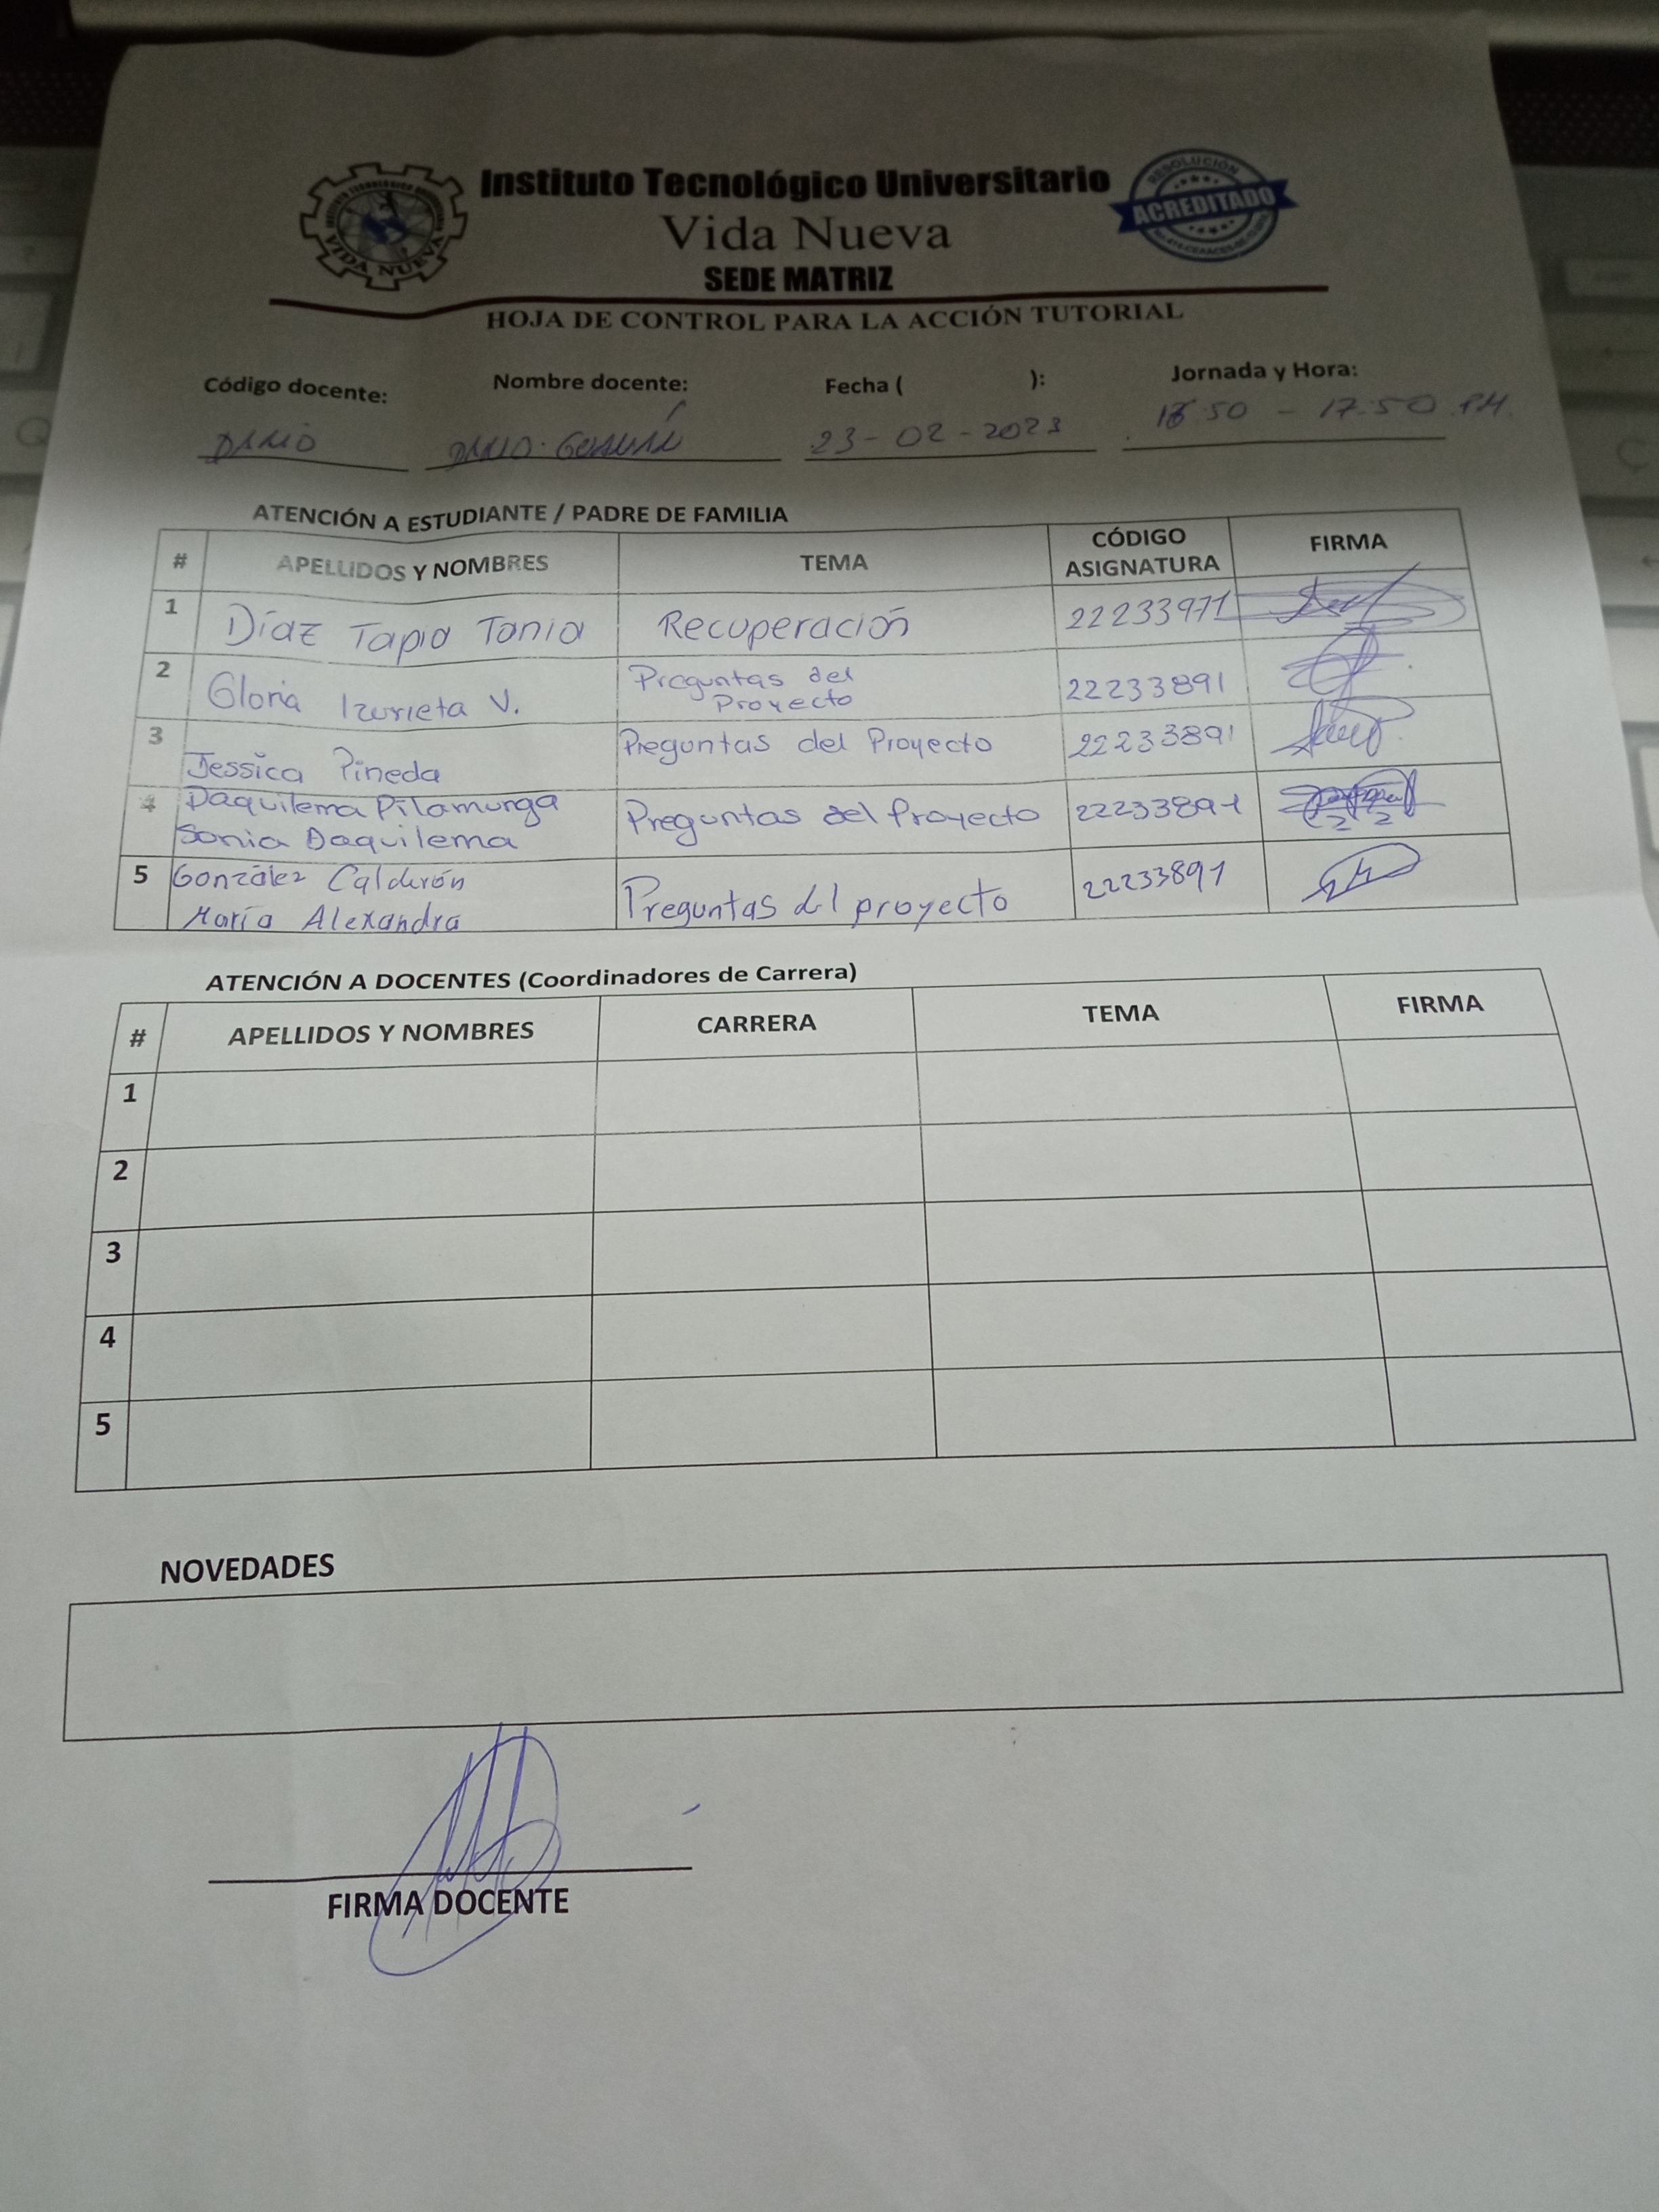 Instituto Tecnológico Universitario
Vida Nueva
SEDE MATRIZ
VIDA NUEVA
RESOLUCIÓN
ACREDITADO
HOJA DE CONTROL PARA LA ACCIÓN TUTORIAL
Código docente: Nombre docente: Fecha ( ): Jornada y Hora:
DARIO DARIO 23-02-2023 16:50 - 17:50 P.M.
ATENCIÓN A ESTUDIANTE / PADRE DE FAMILIA
# APELLIDOS Y NOMBRES TEMA CÓDIGO ASIGNATURA FIRMA
1 Díaz Tapia Tania Recuperación 22233971
2 Gloria Izurieta V. Preguntas del Proyecto 22233891
3 Jessica Pineda Preguntas del Proyecto 22233891
4 Daquilema Pilamunga Sonia Daquilema Preguntas del Proyecto 22233891
5 González Calderón María Alexandra Preguntas del proyecto 22233891
ATENCIÓN A DOCENTES (Coordinadores de Carrera)
# APELLIDOS Y NOMBRES CARRERA TEMA FIRMA
1
2
3
4
5
NOVEDADES
FIRMA DOCENTE